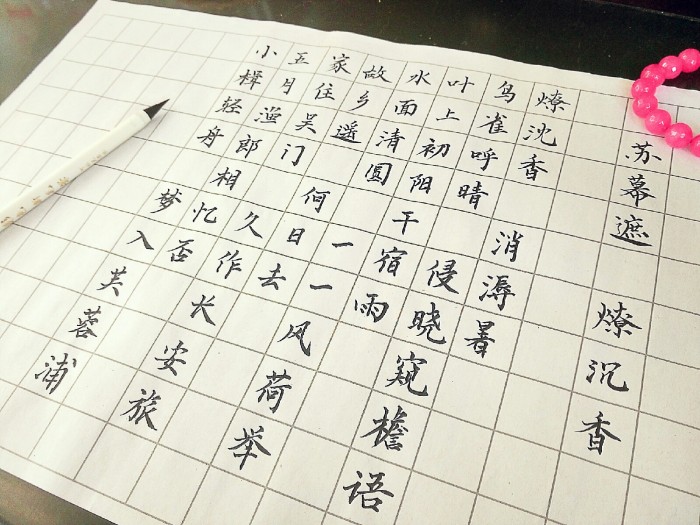 苏幕遮 燎沉香
燎沈香 消溽暑
鸟雀呼晴 侵晓窥檐语
叶上初阳 干宿雨
水面清圆 一一风荷举
故乡遥 何日去
家住吴门 久作长安旅
五月渔郎相忆否
小楫轻舟 梦入芙蓉浦